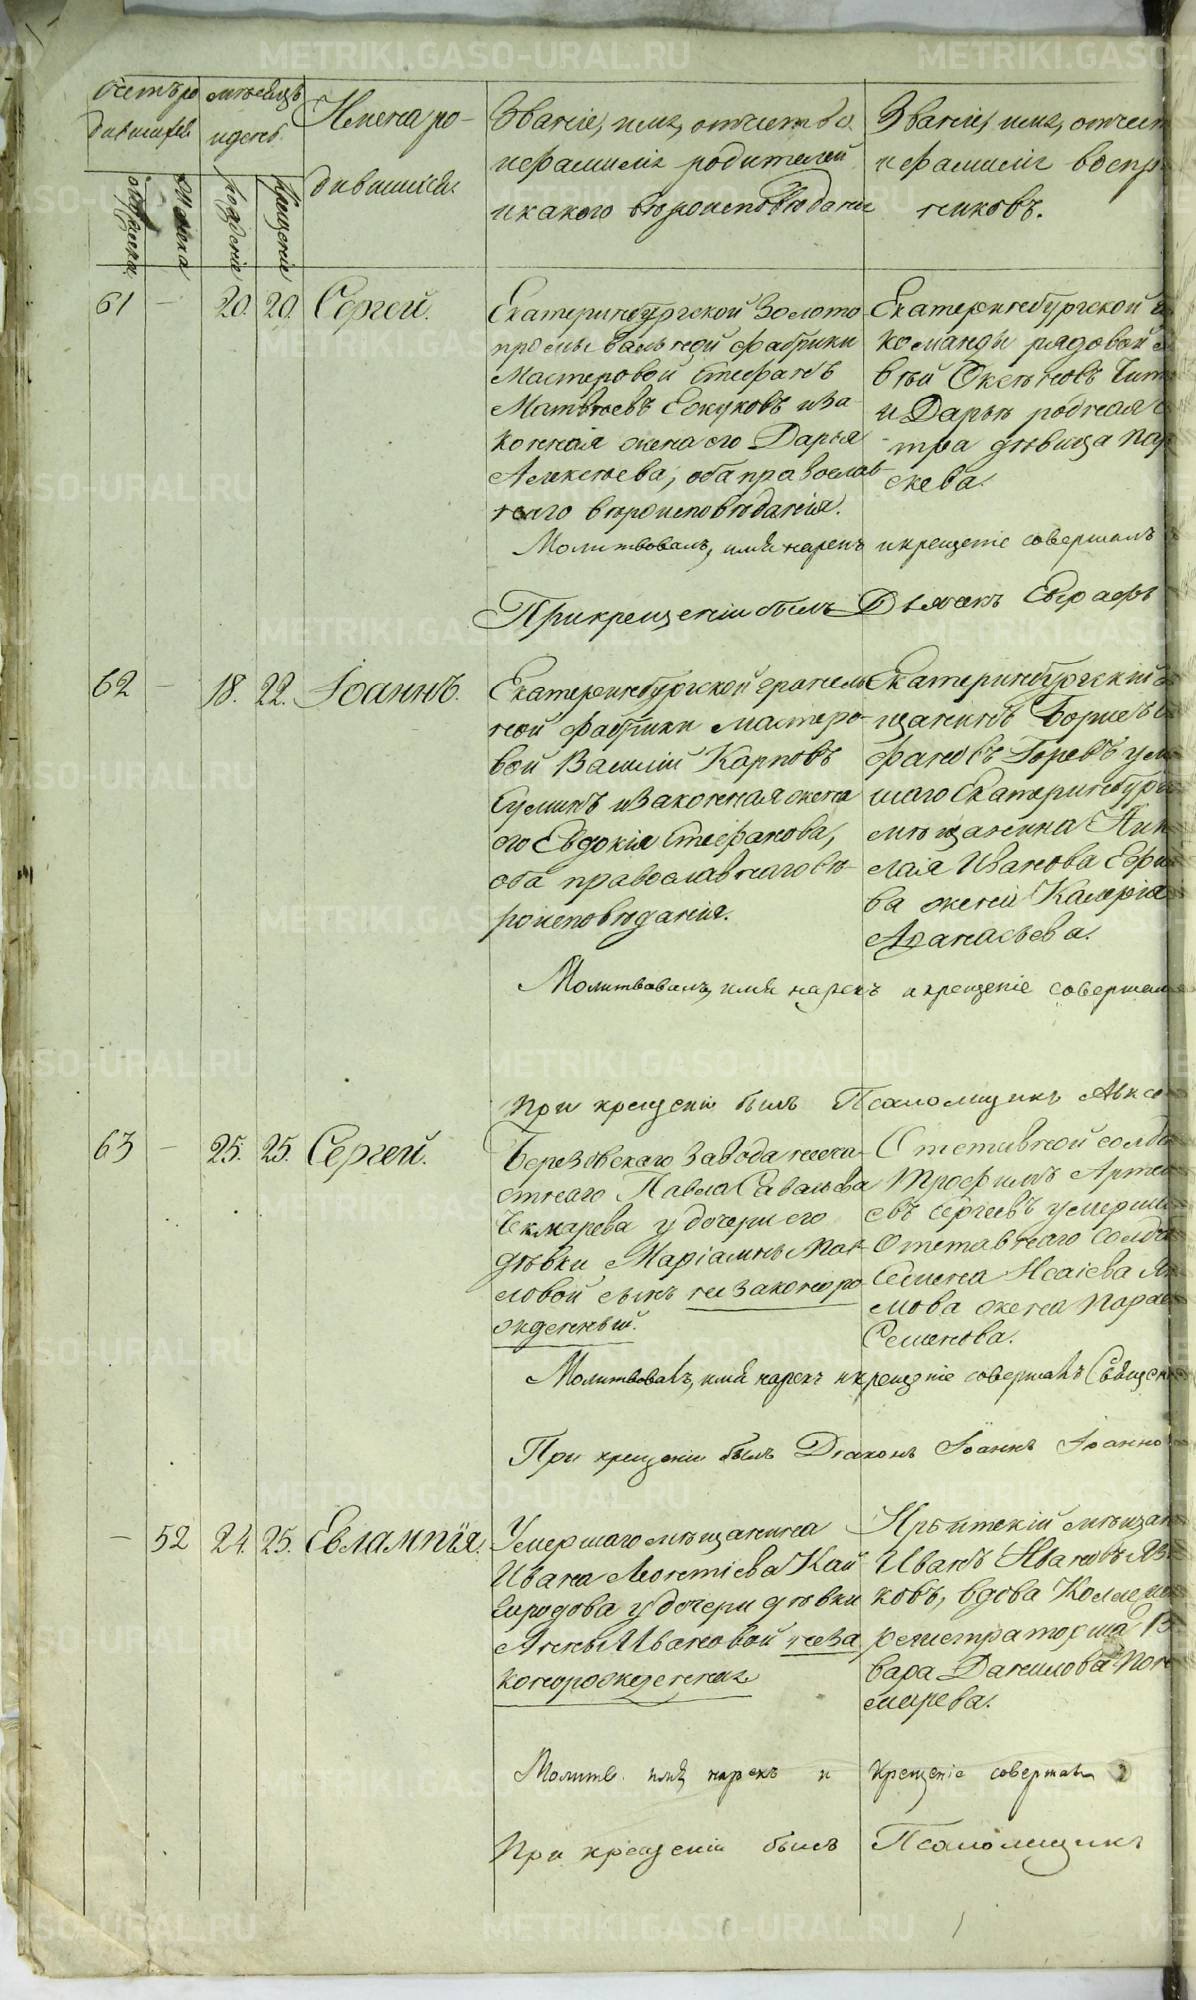 Счетъ ро
дившихся
мужеска
женска
мѣсяцъ
и день
рожденіе
крещеніе
Имена ро-
дившихся.
Званіе, имя, отчество
и фамилія родителей
и какого вѣроисповѣданія
Званіе, имя, отчест
и фамилія воспр
никовъ.
61 — 20. 20. Сергей.
Екатеринбургской Золото
промывальной фабрики
Мастеровой Стефанъ
Матвѣевъ и за-
конная жена его Дарья
Алексѣева, оба православ-
наго вѣроисповѣданія.
Екатеринбургской
команды рядовой
и Дарьи родная с
-тра дѣвица Пар
скева.
Молитвовалъ, имя нарекъ и крещеніе совершалъ
При крещеніи былъ Дьячекъ Евграфъ
62 — 18. 22. Іоаннъ.
Екатеринбургской граниль
ной фабрики мастеро-
вой Василій Карповъ
и законная жена
его Евдокія Стефанова,
оба православнаго вѣ-
роисповѣданія.
Екатеринбургский
щанинъ Борисъ
фановъ Горевъ уме
шаго Екатеринбург
мѣщанина Ник
лая Иванова Ефи
ва жена Калерія
Афанасьева.
Молитвовалъ, имя нарекъ и крещеніе совершал
При крещеніи былъ Псаломщикъ Алексѣ
63 — 25. 25. Сергей.
Березовскаго завода
Павла Савельева
Чекмарева у дочери его
дѣвки Маріамны Пав-
ловой сынъ незаконоро-
жденный.
Отставной солда
Трофимъ Артем
евъ Сергеевъ умерша
Отставнаго Солда
Семена Исаіева
мова жена Парас
Семенова.
Молитвовалъ, имя нарекъ и крещеніе совершалъ Священ
При крещеніи былъ Діаконъ Іоаннъ Іоанно
— 52 24. 25. Евлампія.
Умершаго мѣщанина
Ивана Леонтіева Кай
городова у дочери дѣвки
Анны Ивановой неза
конорожденная
Ирбитскій мѣщан
Иванъ Ивановъ Яз
ковъ, вдова Коллеж
регистраторша В
вара Данилова Поно
марева.
Молитв. имя нарекъ и крещеніе совершалъ
При крещеніи былъ Псаломщикъ
METRIKI.GASO-URAL.RU